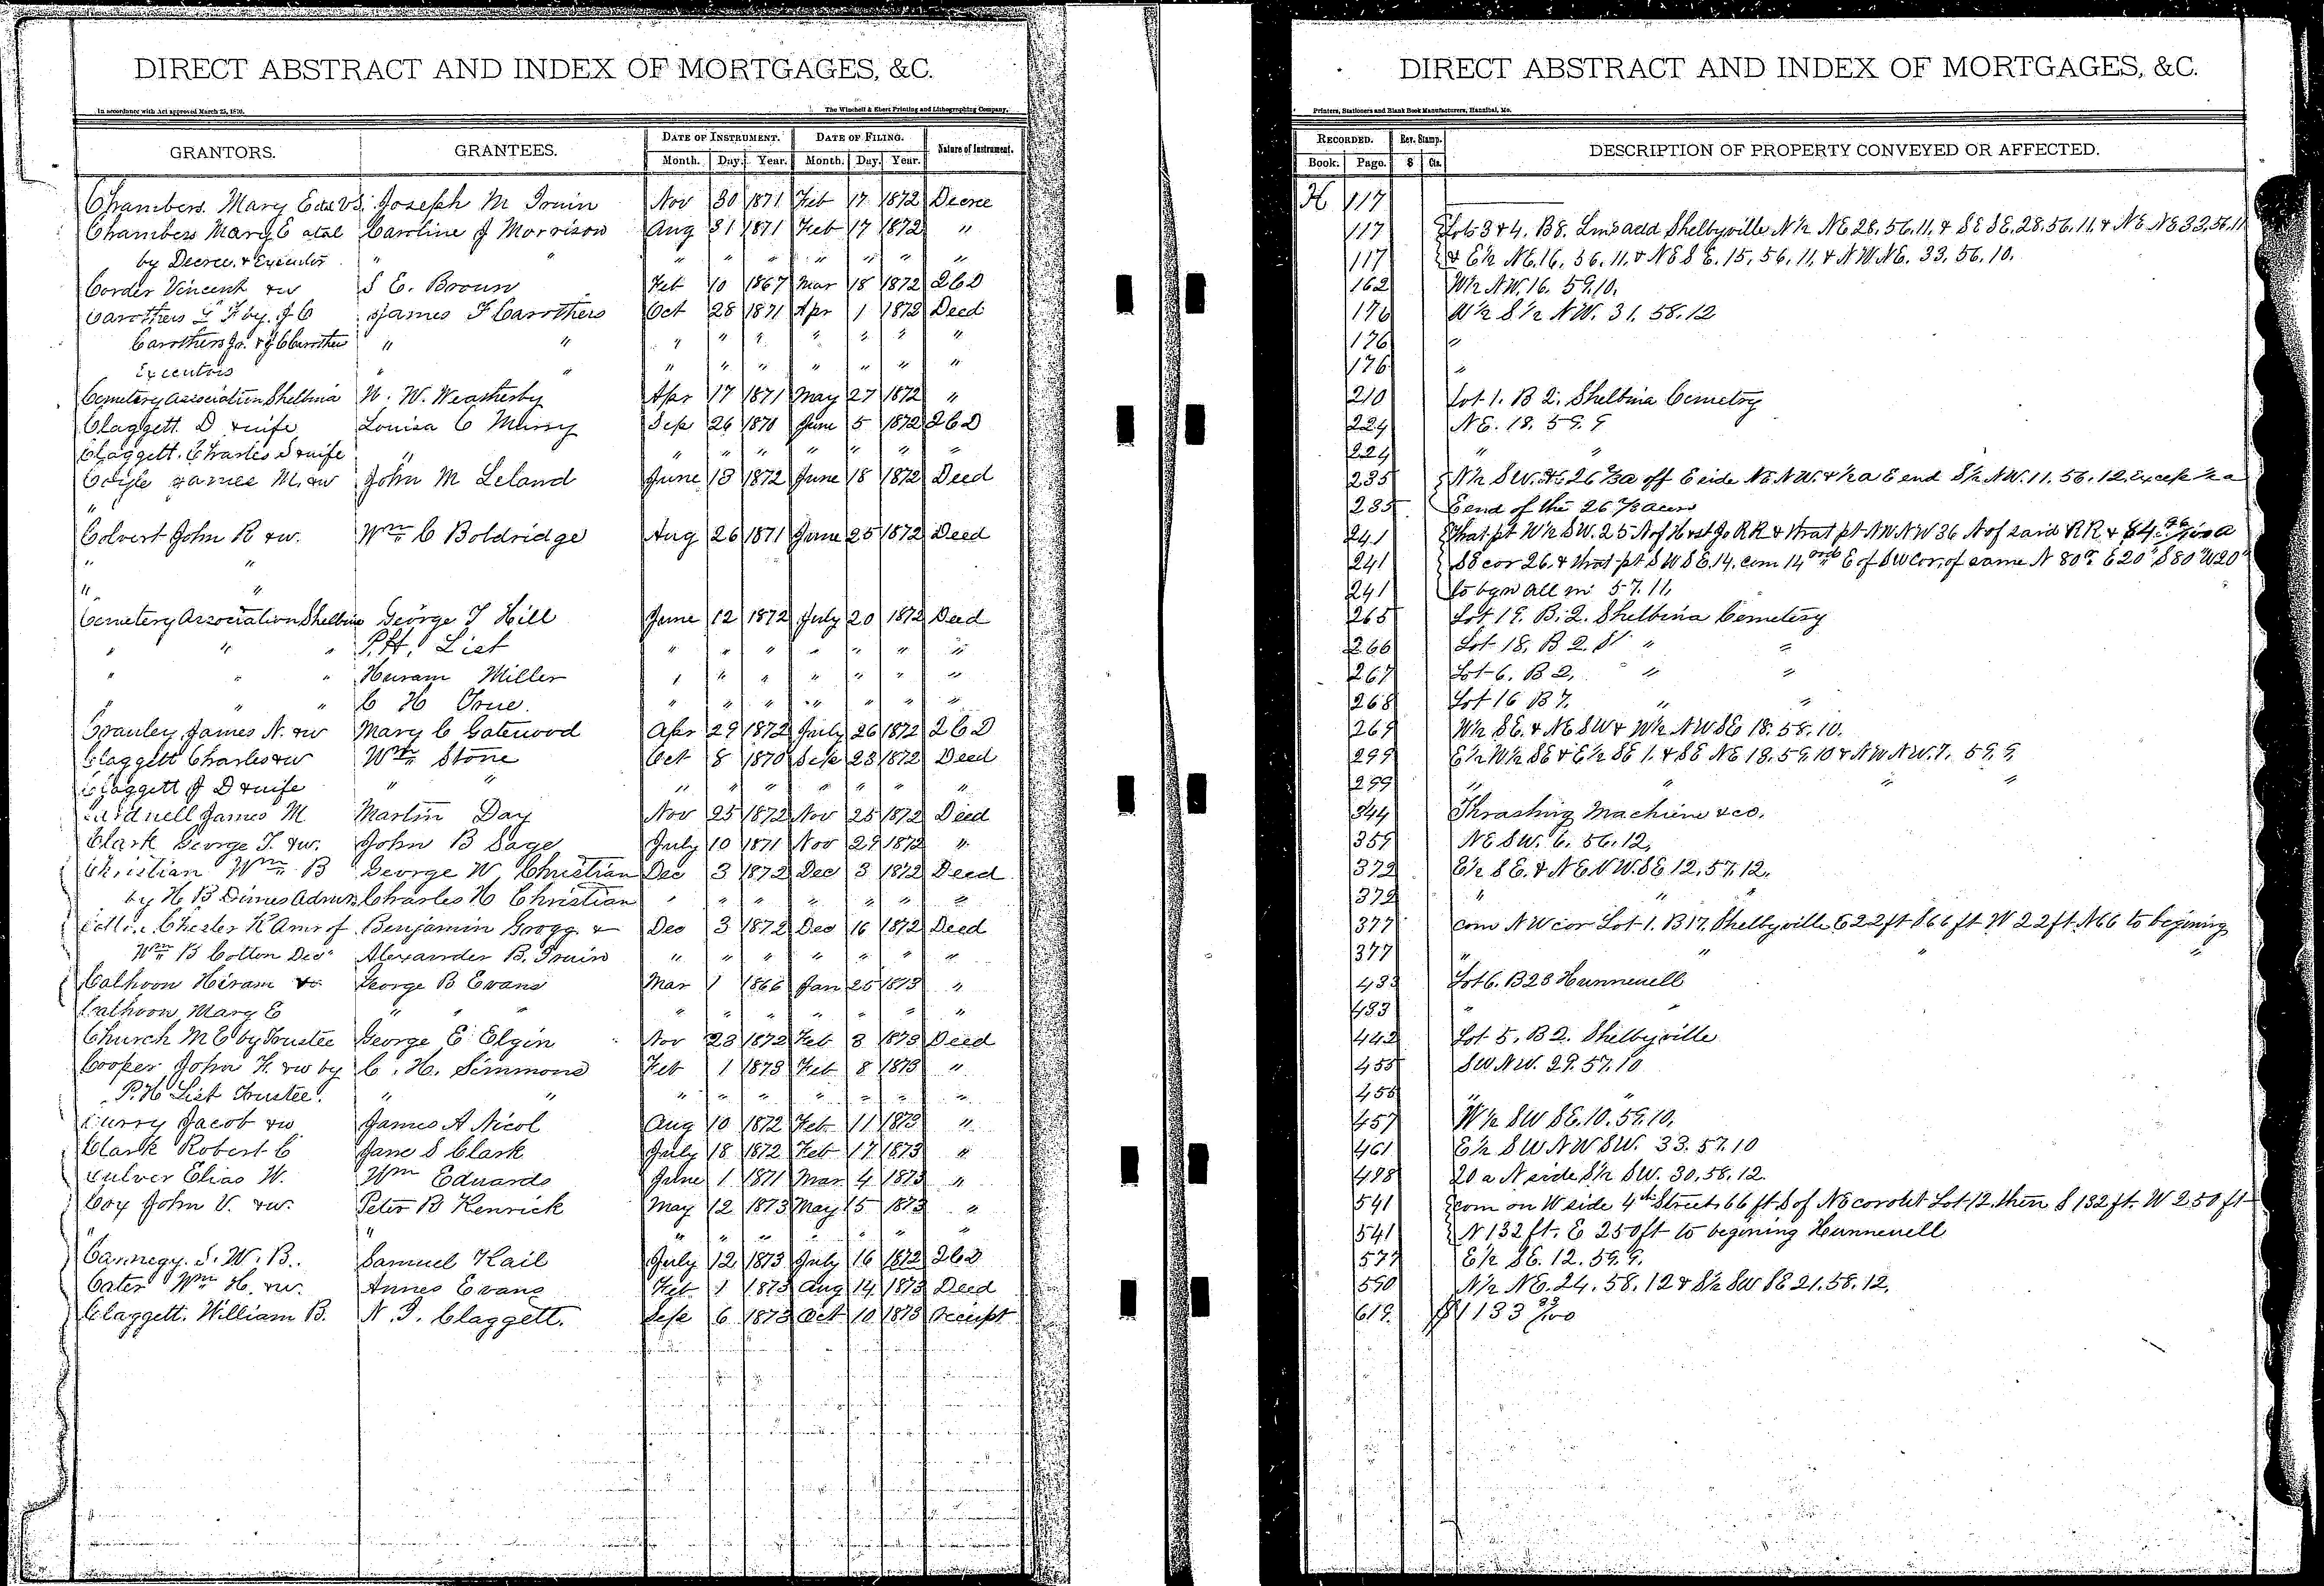 DIRECT ABSTRACT AND INDEX OF MORTGAGES, &C.
In accordance with Act approved March 25, 1870. The Winchell & Ebert Printing and Lithographing Company.
GRANTORS. GRANTEES. DATE OF INSTRUMENT. DATE OF FILING. Nature of Instrument.
Month. Day. Year. Month. Day. Year.
Chambers Mary E et al vs. Joseph M Irwin Nov 30 1871 Feb 17 1872 Decree
Chambers Mary E etal Caroline J Morrison Aug 31 1871 Feb 17 1872 "
by Decree & Executor " " " " " " " " "
Corder Vincent & w S E. Broun Feb 10 1867 Mar 18 1872 2 C D
Carothers L F by J C James F Carothers Oct 28 1871 Apr 1 1872 Deed
Carothers Jr. & J C Carother " " " " " " " " "
Executors " " " " " " " " "
Cemetery Association Shelbina W. W. Weatherby Apr 17 1871 May 27 1872 "
Claggett D & wife Louisa C Mursy Sep 26 1870 June 5 1872 2 C D
Claggett. Charles S & wife " " " " " " " "
Coyle James M. & w John M Leland June 13 1872 June 18 1872 Deed
"
Colvert John R & w. Wm C Boldridge Aug 26 1871 June 25 1872 Deed
" "
" "
Cemetery Association Shelbina George T Hill June 12 1872 July 20 1872 Deed
" " " P. H. List " " " " " " "
" " " Huram Miller " " " " " " "
" " " C H True. " " " " " " "
Cranley James N. & w Mary C Gatewood Apr 29 1872 July 26 1872 2 C D
Claggett Charles & w Wm Stone Oct 8 1870 Sep 23 1872 Deed
Claggett J D & wife " " " " " " " " "
Cardnell James M Martin Day Nov 25 1872 Nov 25 1872 Deed
Clark George T. & w. John B Sage July 10 1871 Nov 29 1872 "
Christian Wm B George W Christian Dec 3 1872 Dec 3 1872 Deed
by H B Dines Admr Charles H Christian " " " " " " "
Chester K Amr of Benjamin Grogg & Dec 3 1872 Dec 16 1872 Deed
Wm B Cotton Decd Alexander B. Irwin " " " " " " "
Calhoon Hiram & George B Evans Mar 1 1866 Jan 25 1873 "
Calhoon Mary E " " " " " " " " " "
Church M E by Trustee George E Elgin Nov 23 1872 Feb 3 1873 Deed
Cooper John F. & w by C. H. Simmons Feb 1 1873 Feb 8 1873 "
P. H List Trustee. " " " " " " " " "
Curry Jacob & w James A Nicol Aug 10 1872 Feb 11 1873 "
Clark Robert C Jane S Clark July 18 1872 Feb 17 1873 "
Culver Elias W. Wm Edwards June 1 1871 Mar 4 1873 "
Coy John V. & w. Peter B Kenrick May 12 1873 May 15 1873 "
" " " " " " " "
Cannegy. S. W. B. Samuel Hail July 12 1873 July 16 1872 2 C D
Cater Wm H. & w. Annes Evans Feb 1 1873 Aug 14 1873 Deed
Claggett. William B. N. T. Claggett. Sep 6 1873 Oct 10 1873 Receipt
DIRECT ABSTRACT AND INDEX OF MORTGAGES, &C.
Printers, Stationers and Blank Book Manufacturers, Hannibal, Mo.
RECORDED. Rev. Stamp. DESCRIPTION OF PROPERTY CONVEYED OR AFFECTED.
Book. Page. $ Cts.
H 117
117 Lots 3 & 4. B 8. Lins add Shelbyville N½ NE 28. 56. 11. & SE SE. 28. 56. 11. & NE NE 33. 56. 11
117 & E½ NE. 16. 56. 11. & NE SE. 15. 56. 11. & NW NE. 33. 56. 10.
162 W½ NW. 16. 59. 10.
176 W½ S½ NW. 31. 58. 12
176 "
176 "
210 Lot 1. B 2. Shelbina Cemetry
224 NE. 18. 59. 9
224 " "
235 N½ SW. & 26⅔a off E side NE NW. & ½a E end S½ NW. 11. 56. 12. Except ½ a
235 E end of the 26⅔ acres
241 That pt W½ SW. 25 N of H & St Jo RR & that pt NW NW 36 N of said RR & 84. 96/100 a
241 SE cor 26. & that pt SW SE. 14. com 14 rods E of SW cor. of same N 80 r E 20 r S 80 r W 20 r
241 to bgn all in 57. 11.
265 Lot 19. B. 2. Shelbina Cemetery
266 Lot 18. B 2. S " "
267 Lot 6. B 2. " "
268 Lot 16 B 7. " "
269 W½ SE. & NE SW & W½ NW SE 18. 58. 10.
299 E½ W½ SE & E½ SE 1. & SE NE 18. 59. 10 & NW NW. 7. 59. 9
299 " " " "
344 Thrashing Machine &co.
359 NE SW. 6. 56. 12.
372 E½ SE. & NE NW. SE 12. 57. 12.
372 " "
377 com NW cor Lot 1. B 17. Shelbyville E 22 ft S 66 ft W 22 ft. N 66 to begining
377 " " " "
433 Lot 6. B 28 Hunnewell
433 "
442 Lot 5. B 2. Shelbyville
455 SW NW. 29. 57. 10
455 " "
457 W½ SW SE. 10. 59. 10.
461 E½ SW NW SW. 33. 57. 10
498 20 a N side S½ SW. 30. 58. 12.
541 com on W side 4th Street 66 ft S of NE cor otlt Lot 12. then S 132 ft. W 250 ft
541 N 132 ft. E 250 ft to begining Hunnewell
577 E½ SE. 12. 59. 9.
590 N½ NE. 24. 58. 12 & S½ SW SE 21. 58. 12.
619 $1133 33/100